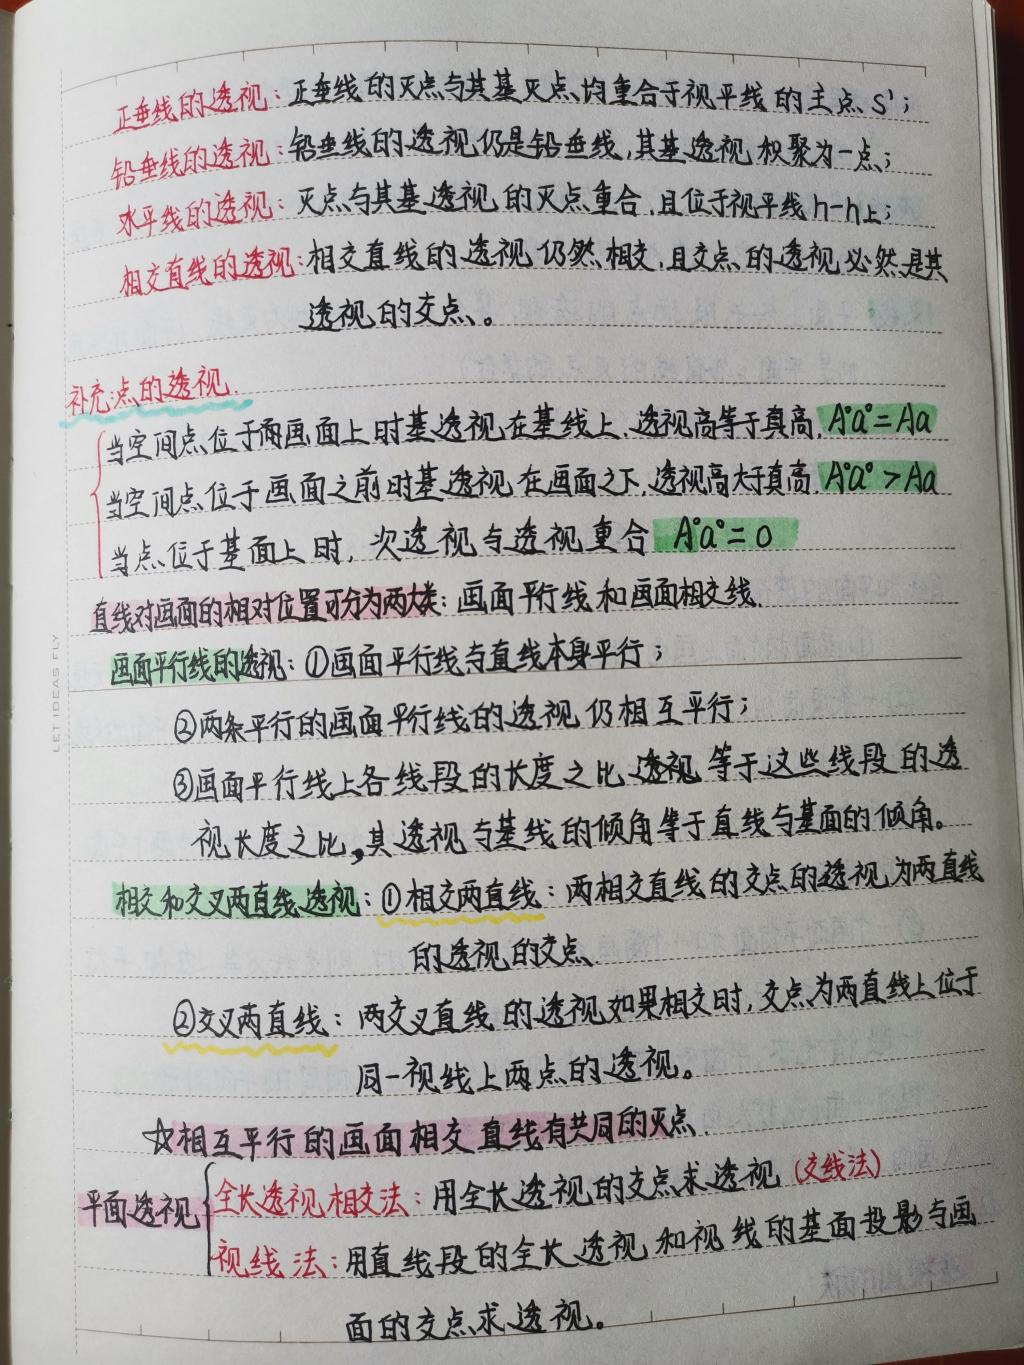 正垂线的透视:正垂线的灭点与其基灭点均重合于视平线的主点S';
铅垂线的透视:铅垂线的透视仍是铅垂线,其基透视积聚为一点;
水平线的透视:灭点与其基透视的灭点重合,且位于视平线h-h上;
相交直线的透视:相交直线的透视仍然相交,且交点的透视必然是其
透视的交点。
补充:点的透视.
当空间点位于画面上时基透视在基线上,透视高等于真高,A°a°=Aa
当空间点位于画面之前时基透视在画面之下,透视高大于真高,A°a°>Aa
当点位于基面上时,次透视与透视重合 A°a°=0
直线对画面的相对位置可分为两大类:画面平行线和画面相交线.
画面平行线的透视:①画面平行线与直线本身平行;
②两条平行的画面平行线的透视仍相互平行;
③画面平行线上各线段的长度之比透视等于这些线段的透
视长度之比,其透视与基线的倾角等于直线与基面的倾角。
相交和交叉两直线透视:①相交两直线:两相交直线的交点的透视为两直线
的透视的交点
②交叉两直线:两交叉直线的透视如果相交时,交点为两直线上位于
同一视线上两点的透视。
☆相互平行的画面相交直线有共同的灭点.
平面透视
全长透视相交法:用全长透视的交点求透视(交线法)
视线法:用直线段的全长透视和视线的基面投影与画
面的交点求透视。
LET IDEAS FLY